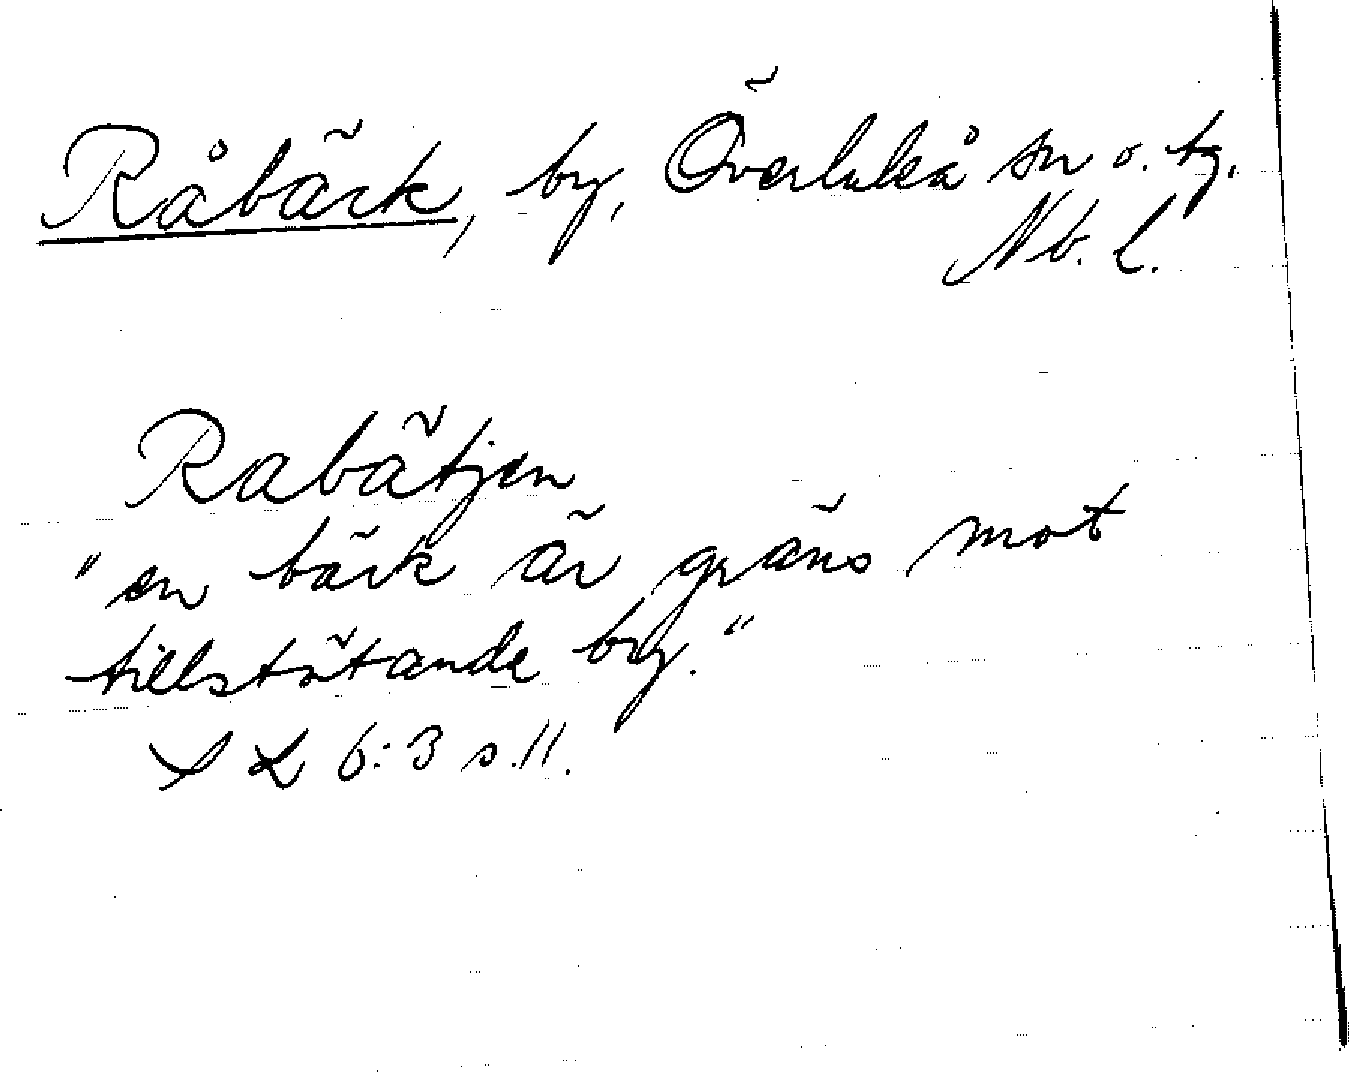 Råbäck, by, Överluleå sn o. tg.
Nb. L.
Rabätjen
"en bäck är gräns mot
tillstötande by."
6:3 s.11.